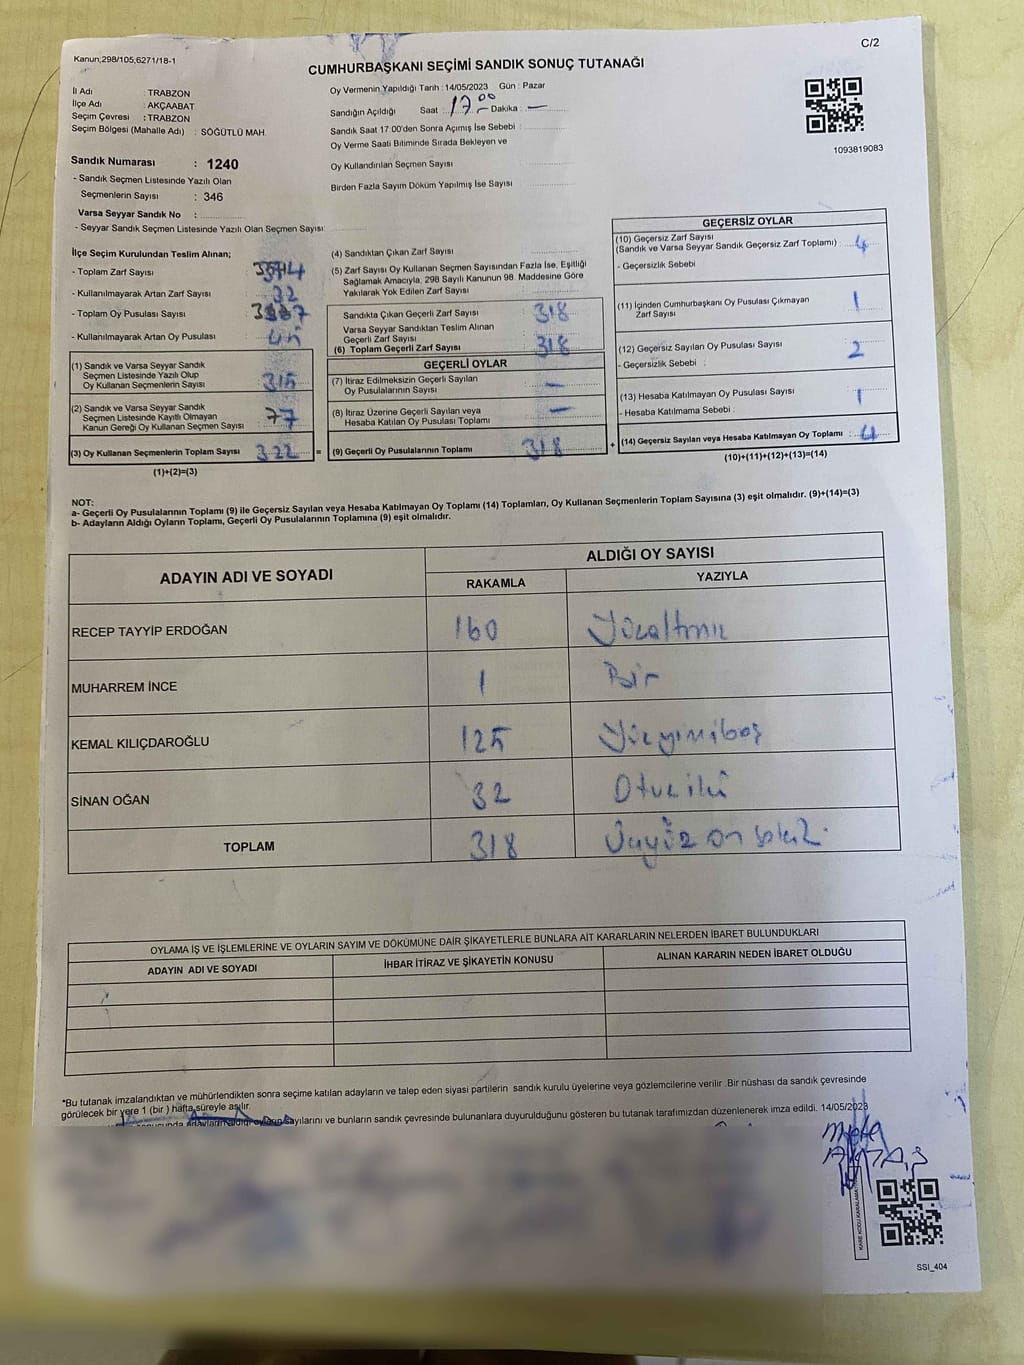 Kanun;298/105,6271/18-1
C/2
CUMHURBAŞKANI SEÇİMİ SANDIK SONUÇ TUTANAĞI
İl Adı : TRABZON
İlçe Adı : AKÇAABAT
Seçim Çevresi : TRABZON
Seçim Bölgesi (Mahalle Adı) : SÖĞÜTLÜ MAH.
Oy Vermenin Yapıldığı Tarih : 14/05/2023 Gün : Pazar
Sandığın Açıldığı Saat : 17.00 Dakika : —
Sandık Saat 17.00'den Sonra Açımış İse Sebebi :
Oy Verme Saati Bitiminde Sırada Bekleyen ve
Oy Kullandırılan Seçmen Sayısı
Birden Fazla Sayım Döküm Yapılmış İse Sayısı
1093819083
Sandık Numarası : 1240
- Sandık Seçmen Listesinde Yazılı Olan
Seçmenlerin Sayısı : 346
Varsa Seyyar Sandık No :
- Seyyar Sandık Seçmen Listesinde Yazılı Olan Seçmen Sayısı:
İlçe Seçim Kurulundan Teslim Alınan;
- Toplam Zarf Sayısı
- Kullanılmayarak Artan Zarf Sayısı : 32
- Toplam Oy Pusulası Sayısı
- Kullanılmayarak Artan Oy Pusulası : 45
(1) Sandık ve Varsa Seyyar Sandık
Seçmen Listesinde Yazılı Olup
Oy Kullanan Seçmenlerin Sayısı : 315
(2) Sandık ve Varsa Seyyar Sandık
Seçmen Listesinde Kayıtlı Olmayan
Kanun Gereği Oy Kullanan Seçmen Sayısı :
(3) Oy Kullanan Seçmenlerin Toplam Sayısı : 322
(1)+(2)=(3)
(4) Sandıktan Çıkan Zarf Sayısı
(5) Zarf Sayısı Oy Kullanan Seçmen Sayısından Fazla İse, Eşitliği
Sağlamak Amacıyla, 298 Sayılı Kanunun 98. Maddesine Göre
Yakılarak Yok Edilen Zarf Sayısı
Sandıkta Çıkan Geçerli Zarf Sayısı : 318
Varsa Seyyar Sandıktan Teslim Alınan
Geçerli Zarf Sayısı
(6) Toplam Geçerli Zarf Sayısı : 318
GEÇERLİ OYLAR
(7) İtiraz Edilmeksizin Geçerli Sayılan
Oy Pusulalarının Sayısı : —
(8) İtiraz Üzerine Geçerli Sayılan veya
Hesaba Katılan Oy Pusulası Toplamı : —
= (9) Geçerli Oy Pusulalarının Toplamı : 318
GEÇERSİZ OYLAR
(10) Geçersiz Zarf Sayısı
(Sandık ve Varsa Seyyar Sandık Geçersiz Zarf Toplamı) : 4
- Geçersizlik Sebebi
(11) İçinden Cumhurbaşkanı Oy Pusulası Çıkmayan
Zarf Sayısı : 1
(12) Geçersiz Sayılan Oy Pusulası Sayısı : 2
- Geçersizlik Sebebi :
(13) Hesaba Katılmayan Oy Pusulası Sayısı : 1
- Hesaba Katılmama Sebebi :
+ (14) Geçersiz Sayılan veya Hesaba Katılmayan Oy Toplamı : 4
(10)+(11)+(12)+(13)=(14)
NOT:
a- Geçerli Oy Pusulalarının Toplamı (9) ile Geçersiz Sayılan veya Hesaba Katılmayan Oy Toplamı (14) Toplamları, Oy Kullanan Seçmenlerin Toplam Sayısına (3) eşit olmalıdır. (9)+(14)=(3)
b- Adayların Aldığı Oyların Toplamı, Geçerli Oy Pusulalarının Toplamına (9) eşit olmalıdır.
ADAYIN ADI VE SOYADI
ALDIĞI OY SAYISI
RAKAMLA YAZIYLA
RECEP TAYYİP ERDOĞAN 160 Yüzaltmış
MUHARREM İNCE 1 Bir
KEMAL KILIÇDAROĞLU 125 Yüzyirmibeş
SİNAN OĞAN 32 Otuz iki
TOPLAM 318 Üçyüz on sekiz.
OYLAMA İŞ VE İŞLEMLERİNE VE OYLARIN SAYIM VE DÖKÜMÜNE DAİR ŞİKAYETLERLE BUNLARA AİT KARARLARIN NELERDEN İBARET BULUNDUKLARI
ADAYIN ADI VE SOYADI İHBAR İTİRAZ VE ŞİKAYETİN KONUSU ALINAN KARARIN NEDEN İBARET OLDUĞU
*Bu tutanak imzalandıktan ve mühürlendikten sonra seçime katılan adayların ve talep eden siyasi partilerin sandık kurulu üyelerine veya gözlemcilerine verilir .Bir nüshası da sandık çevresinde
görülecek bir yere 1 (bir ) hafta süreyle asılır.
sayılarını ve bunların sandık çevresinde bulunanlara duyurulduğunu gösteren bu tutanak tarafımızdan düzenlenerek imza edildi. 14/05/2023
KARE KODU KARALAMA
SSI_404